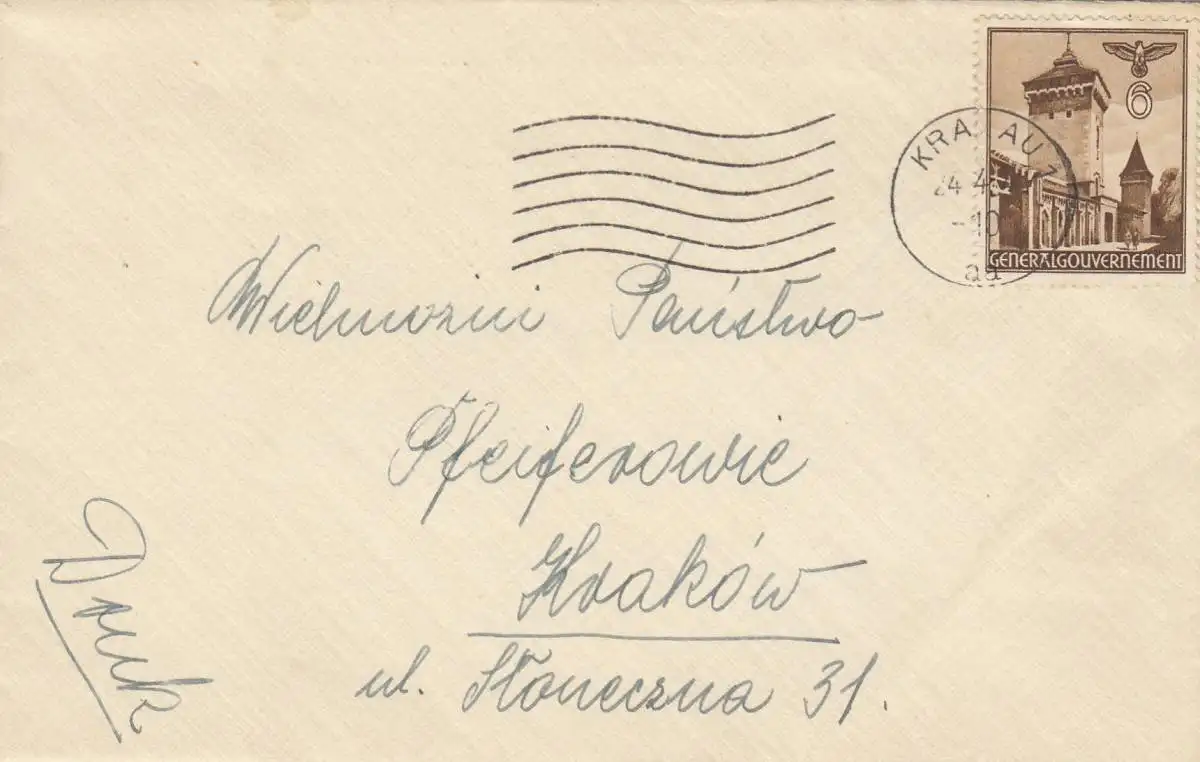 6
GENERALGOUVERNEMENT
KRAKAU 1
24 4
-10
aa
Wielmożni Państwo
Pfeiferowie
Kraków
ul. Słoneczna 31.
Druk